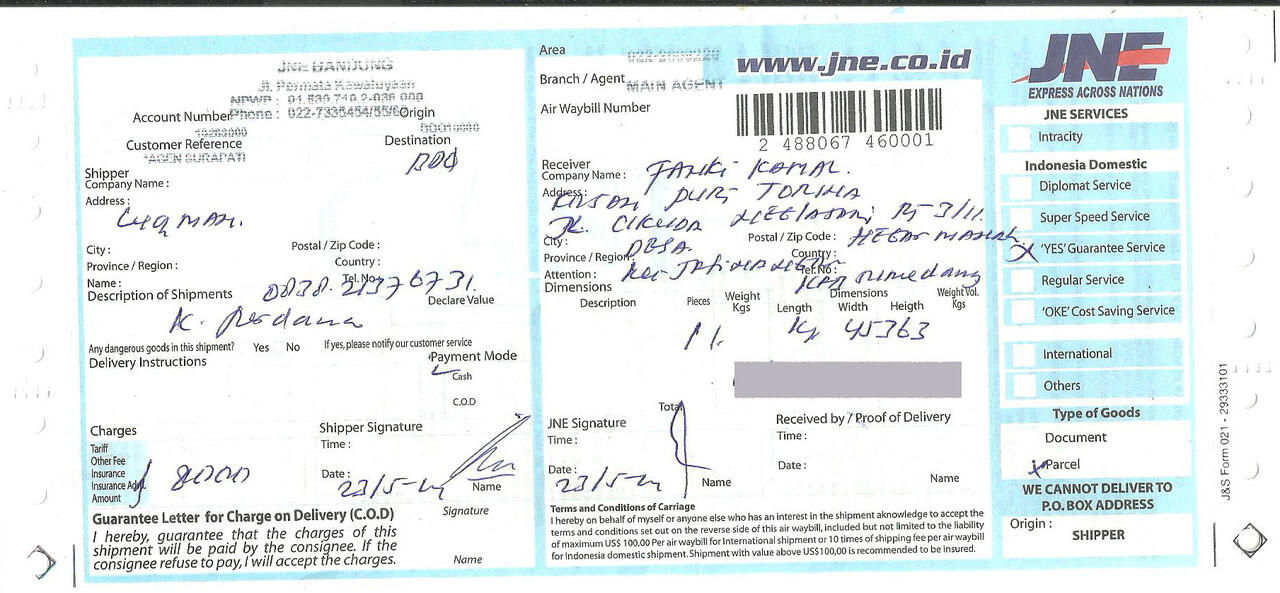 JNE BANDUNG
Jl. Permata Kawaluyaan
NPWP :
Account Number
Phone : 022-7335454/55/60
Origin
Customer Reference
AGEN SURAPATI
Destination
Shipper
Company Name :
Address :
LUQMAN.
City :
Postal / Zip Code :
Province / Region :
Country :
Name :
Tel. No
Description of Shipments
Declare Value
K. Perdana
Any dangerous goods in this shipment? Yes No If yes, please notify our customer service
Delivery Instructions
Payment Mode
Cash
C.O.D
Charges
Tariff
Other Fee
Insurance
Insurance Adm.
Amount
8000
Shipper Signature
Time :
Date :
23/5-
Name
Guarantee Letter for Charge on Delivery (C.O.D)
I hereby, guarantee that the charges of this
shipment will be paid by the consignee. If the
consignee refuse to pay, I will accept the charges.
Signature
Name
Area
Branch / Agent
MAIN AGENT
Air Waybill Number
www.jne.co.id
2 488067 460001
Receiver
Company Name :
KAMAL.
Address :
PURI
JL.
City :
DESA.
Postal / Zip Code :
Province / Region
Country :
Attention :
Tel. No :
Dimensions
Description
Pieces
Weight
Kgs
Dimensions
Length Width Heigth
Weight Vol.
Kgs
11.
Kg 45363
Total
JNE Signature
Time :
Date :
23/5-
Name
Received by / Proof of Delivery
Time :
Date :
Name
Terms and Conditions of Carriage
I hereby on behalf of myself or anyone else who has an interest in the shipment aknowledge to accept the
terms and conditions set out on the reverse side of this air waybill, included but not limited to the liability
of maximum US$ 100,00 Per air waybill for International shipment or 10 times of shipping fee per air waybill
for Indonesia domestic shipment. Shipment with value above US$100,00 is recommended to be insured.
JNE
EXPRESS ACROSS NATIONS
JNE SERVICES
Intracity
Indonesia Domestic
Diplomat Service
Super Speed Service
'YES' Guarantee Service
Regular Service
'OKE' Cost Saving Service
International
Others
Type of Goods
Document
Parcel
WE CANNOT DELIVER TO
P.O. BOX ADDRESS
Origin :
SHIPPER
J&S Form 021 - 29333101